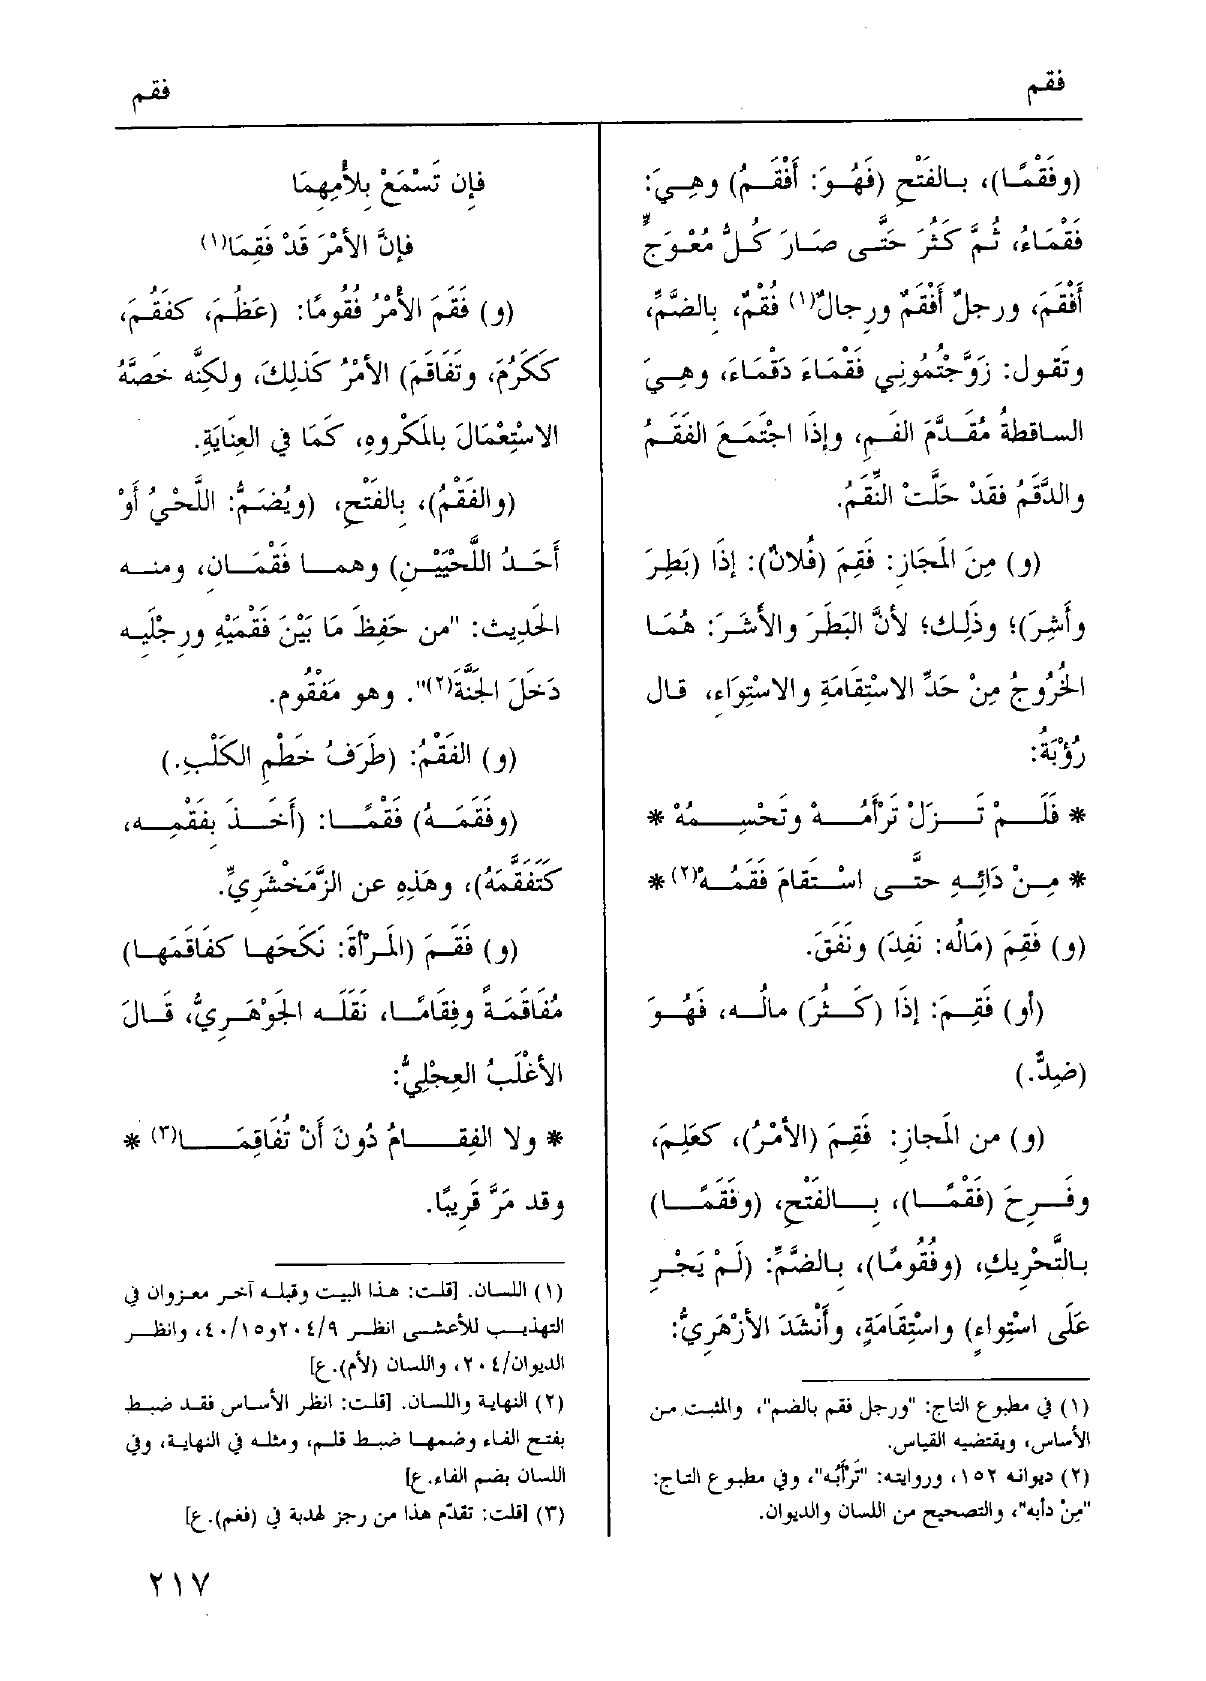 فقم
فقم
(وفَقْمًا)، بالفَتْحِ (فَهُوَ: أَفْقَمُ) وهِيَ:
فَقْمَاءُ، ثُمَّ كَثُرَ حَتَّى صَارَ كُلُّ مُعْوَجٍّ
أَفْقَمَ، ورجلٌ أَفْقَمٌ ورِجالٌ(١) فُقْمٌ، بالضَّمِّ،
وتَقول: زَوَّجْتُمُونِي فَقْمَاءَ دَقْمَاءَ، وهِيَ
الساقطةُ مُقَدَّمَ الفَمِ، وإذَا اجْتَمَعَ الفَقَمُ
والدَّقَمُ فقَدْ حَلَّتْ النِّقَمُ.
(و) مِنَ المَجَازِ: فَقِمَ (فُلانٌ): إذَا (بَطِرَ
وأَشِرَ)؛ وذَلِك؛ لأنَّ البَطَرَ والأَشَرَ: هُمَا
الخُرُوجُ مِنْ حَدِّ الاسْتِقَامَةِ والاسْتِوَاءِ، قال
رُؤْبَةُ:
* فَلَمْ تَزَلْ تَرْأَمُهُ وتَحْسِمُهْ *
* مِنْ دَائِهِ حتَّى اسْتَقامَ فَقَمُهْ(٢) *
(و) فَقِمَ (مَالُه: نَفِدَ) ونَفَقَ.
(أو) فَقِمَ: إذَا (كَثُرَ) مالُه، فَهُوَ
(ضِدٌّ.)
(و) من المَجازِ: فَقِمَ (الأَمْرُ)، كعَلِمَ،
وفَرِحَ (فَقْمًا)، بِالفَتْحِ، (وفَقَمًا)
بالتَّحْرِيكِ، (وفُقُومًا)، بالضَّمِّ: (لَمْ يَجْرِ
عَلَى اسْتِواءٍ) واسْتِقَامَةٍ، وأَنْشَدَ الأَزْهَرِيُّ:
(١) في مطبوع التاج: "ورجل فقم بالضم"، والمثبت من
الأساس، ويقتضيه القياس.
(٢) ديوانه ١٥٢، وروايته: "تَرْأَبُه"، وفي مطبوع التاج:
"مِنْ دأبه"، والتصحيح من اللسان والديوان.
فإن تَسْمَعْ بِلأْمِهِمَا
فإنَّ الأَمْرَ قَدْ فَقِمَا(١)
(و) فَقَمَ الأَمْرُ فُقُومًا: (عَظُمَ، كفَقُمَ،
كَكَرُمَ، وتَفاقَمَ) الأمْرُ كَذلِكَ، ولكِنَّه خَصَّهُ
الاسْتِعْمَالَ بالمَكْرُوهِ، كَمَا في العِنَايَةِ.
(والفَقْمُ)، بِالفَتْحِ، (ويُضَمُّ: اللَّحْيُ أَوْ
أَحَدُ اللَّحْيَيْنِ) وهما فَقْمَان، ومنه
الحَدِيث: "من حَفِظَ مَا بَيْنَ فَقْمَيْهِ ورِجْلَيه
دَخَلَ الجَنَّةَ(٢)". وهو مَفْقُوم.
(و) الفَقْمُ: (طَرَفُ خَطْمِ الكَلْبِ.)
(وفَقَمَهُ) فَقْمًا: (أَخَذَ بِفَقْمِه،
كَتَفَقَّمَهُ)، وهَذِهِ عن الزَّمَخْشَرِيِّ.
(و) فَقَمَ (المَرْأَةَ: نَكَحَها كفَاقَمَها)
مُفَاقَمَةً وفِقَامًا، نَقَلَه الجَوْهَرِيُّ، قَالَ
الأَغْلَبُ العِجْلِيُّ:
* ولا الفِقَامُ دُونَ أَنْ تُفَاقِمَا(٣) *
وقد مَرَّ قَرِيبًا.
(١) اللسان. [قلت: هذا البيت وقبله آخر معزوان في
التهذيب للأعشى انظر ٢٠٤/٩و٤٠٠/١٥، وانظر
الديوان/٢٠٤، واللسان (لأم).ع]
(٢) النهاية واللسان. [قلت: انظر الأساس فقد ضبط
بفتح الفاء وضمها ضبط قلم، ومثله في النهاية، وفي
اللسان بضم الفاء.ع]
(٣) [قلت: تقدّم هذا من رجز لهدبة في (فغم).ع]
٢١٧